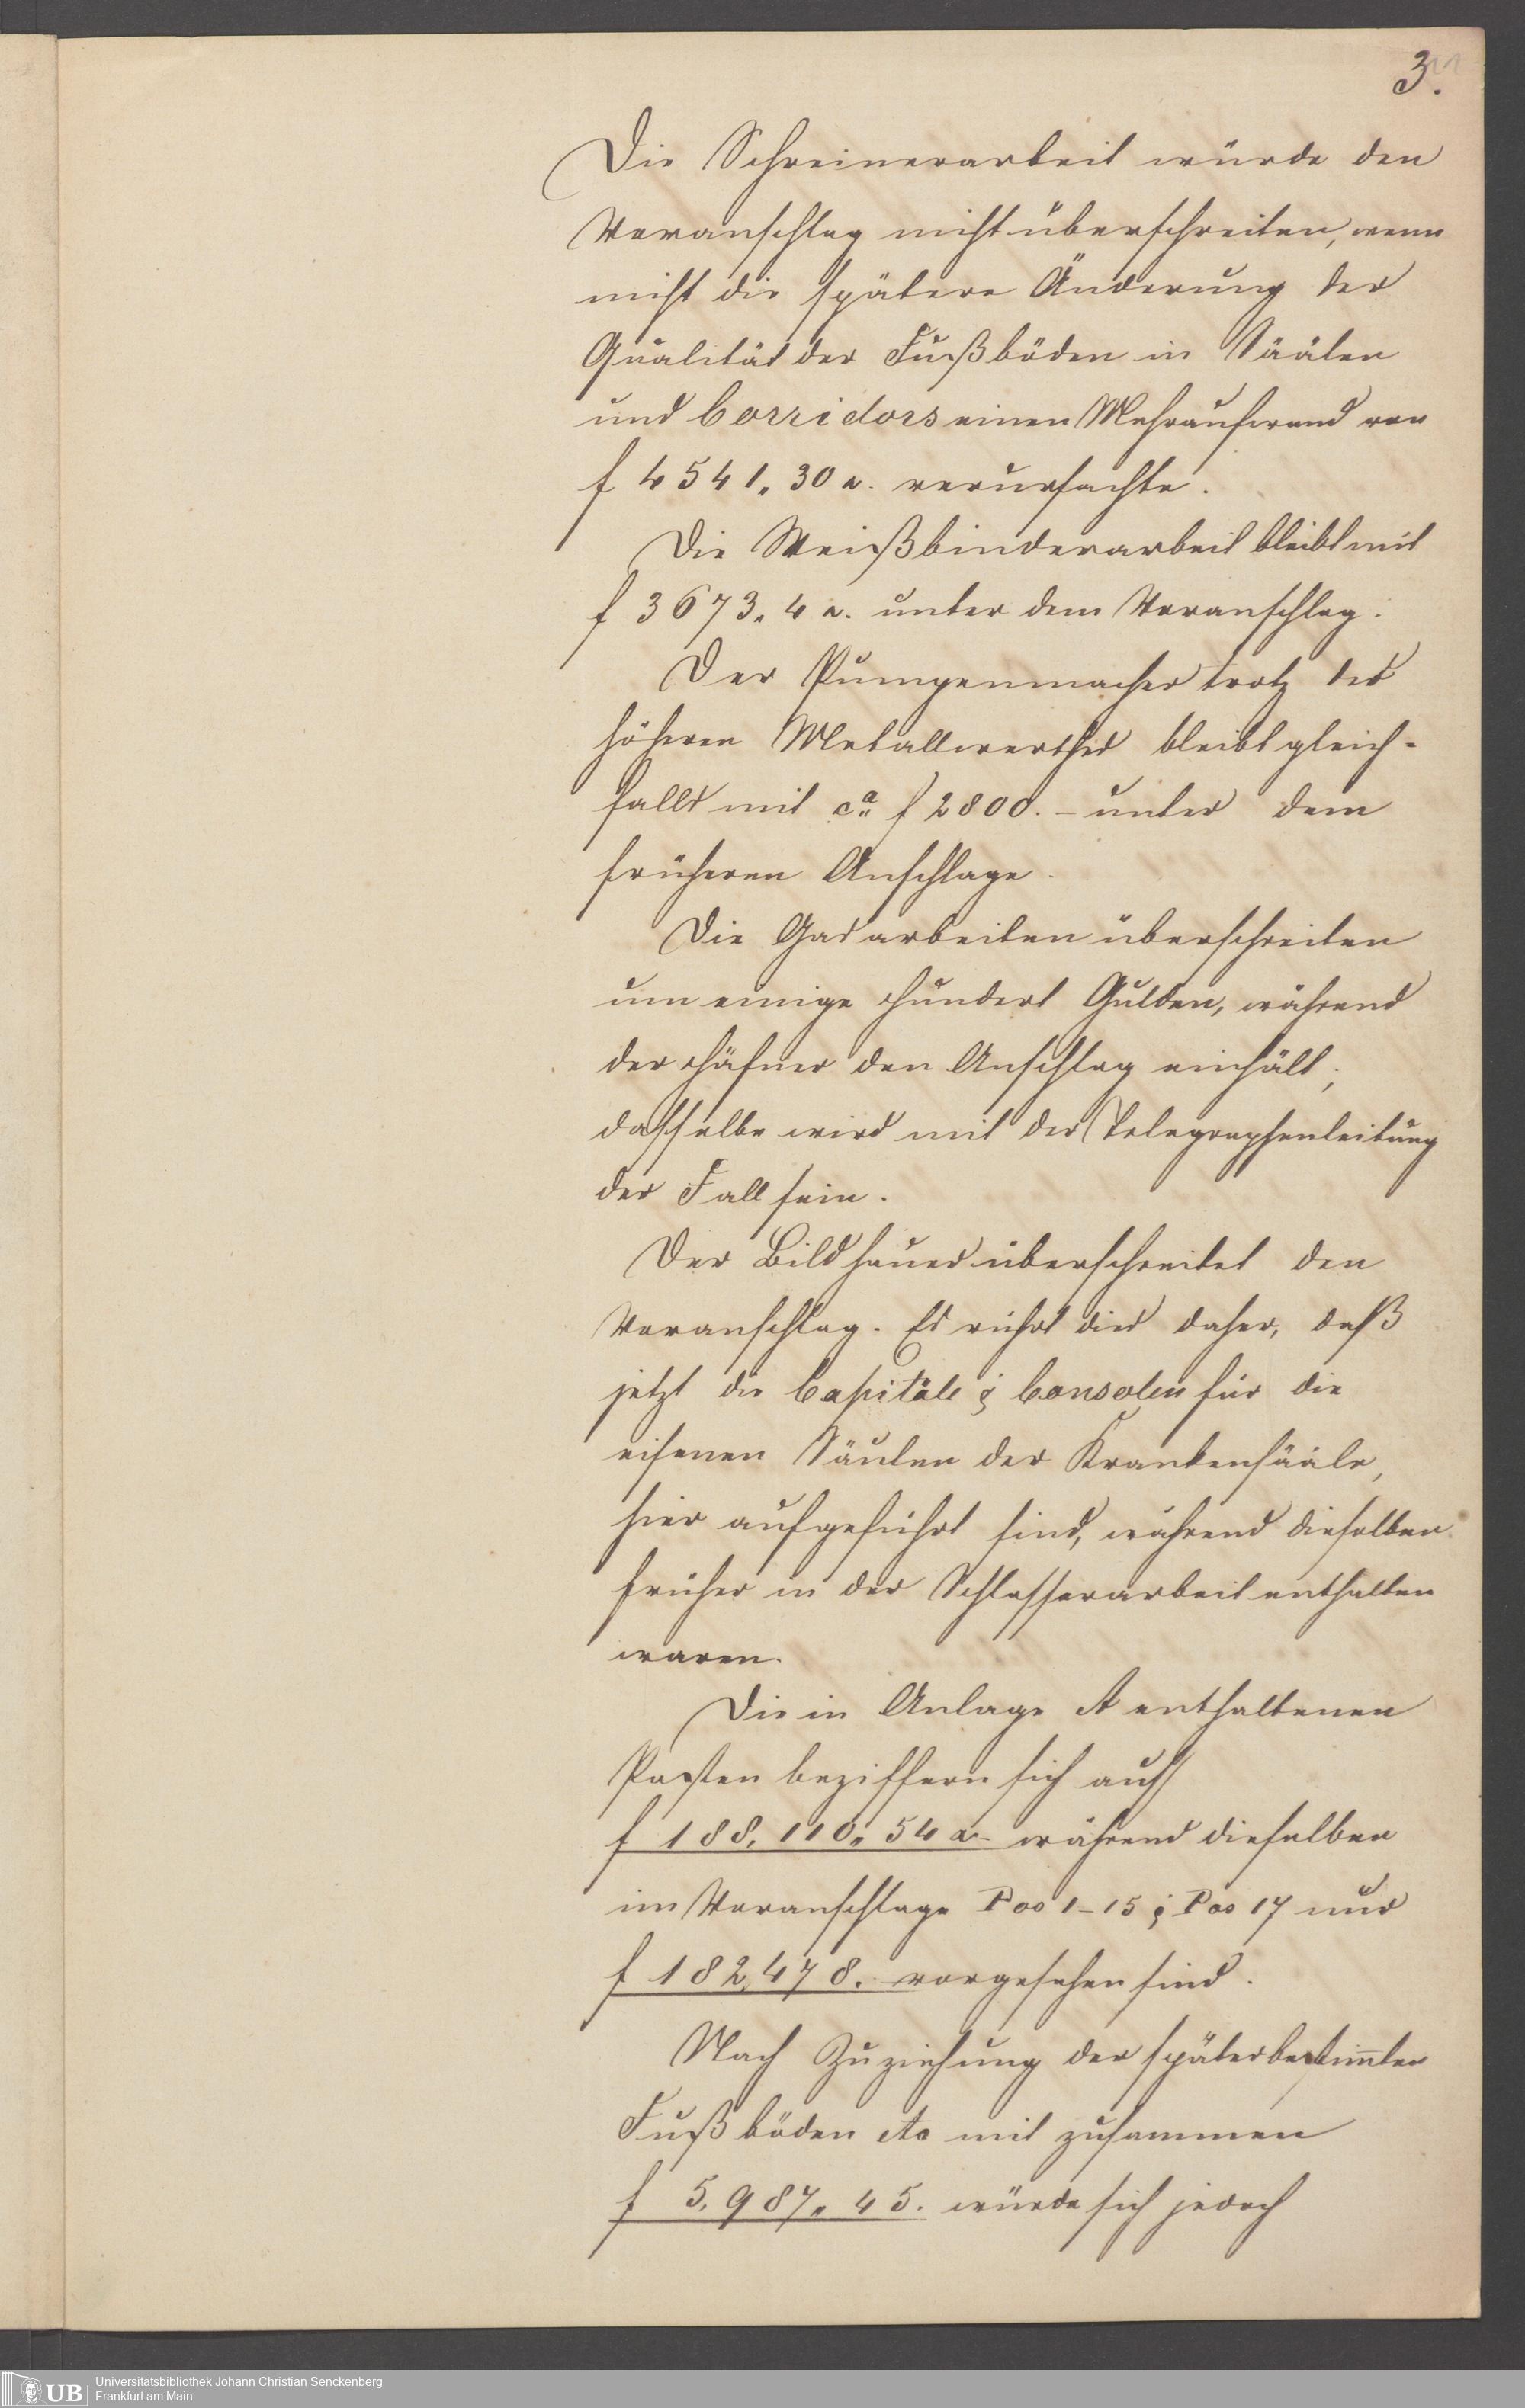 3.
Die Schreinerarbeit würde den
Voranschlag nicht überschreiten, wenn
nicht die spätere Änderung der
Qualität der Fußböden in Säälen
und Corridors einen Mehraufwand von
f 4541. 30 x. verursachte.
Die Weißbinderarbeit bleibt mit
f 3673. 4 x. unter dem Voranschlag.
Der Pumpenmacher trotz des
höheren Metallwerthes bleibt gleich-
falls mit ca f 2800. – unter dem
früheren Anschlage.
Die Gasarbeiten überschreiten
um einige Hundert Gulden, während
der Häfner den Anschlag einhält;
dasselbe wird mit der Telegraphenleitung
der Fall sein.
Der Bildhauer überschreitet den
Voranschlag. Es rührt dies daher, daß
jetzt die Capitäle & Consolen für die
eisenen Säulen der Krankensääle,
hier aufgeführt sind, während dieselben
früher in der Schlosserarbeit enthalten
waren.
Die in Anlage A enthaltenen
Posten beziffern sich auf
f 188,110. 54 x. während dieselben
im Voranschlage Pos 1–15 & Pos 17 nur
f 182,478. vorgesehen sind.
Nach Zuziehung der später bestimmten
Fußböden etc mit zusammen
f 5,987. 45. würde sich jedoch
UB
Universitätsbibliothek Johann Christian Senckenberg
Frankfurt am Main